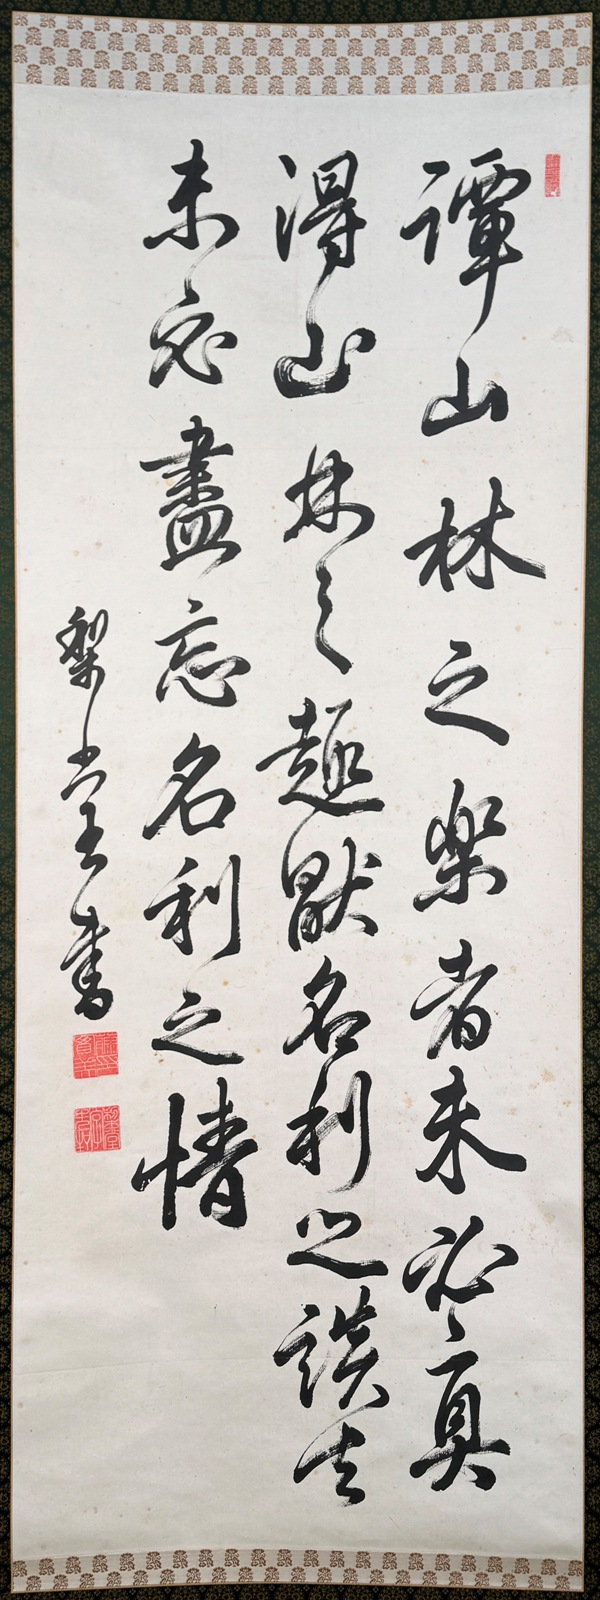 譚山林之楽者未必真
得山林之趣猒名利之談者
未必盡忘名利之情
梨堂書